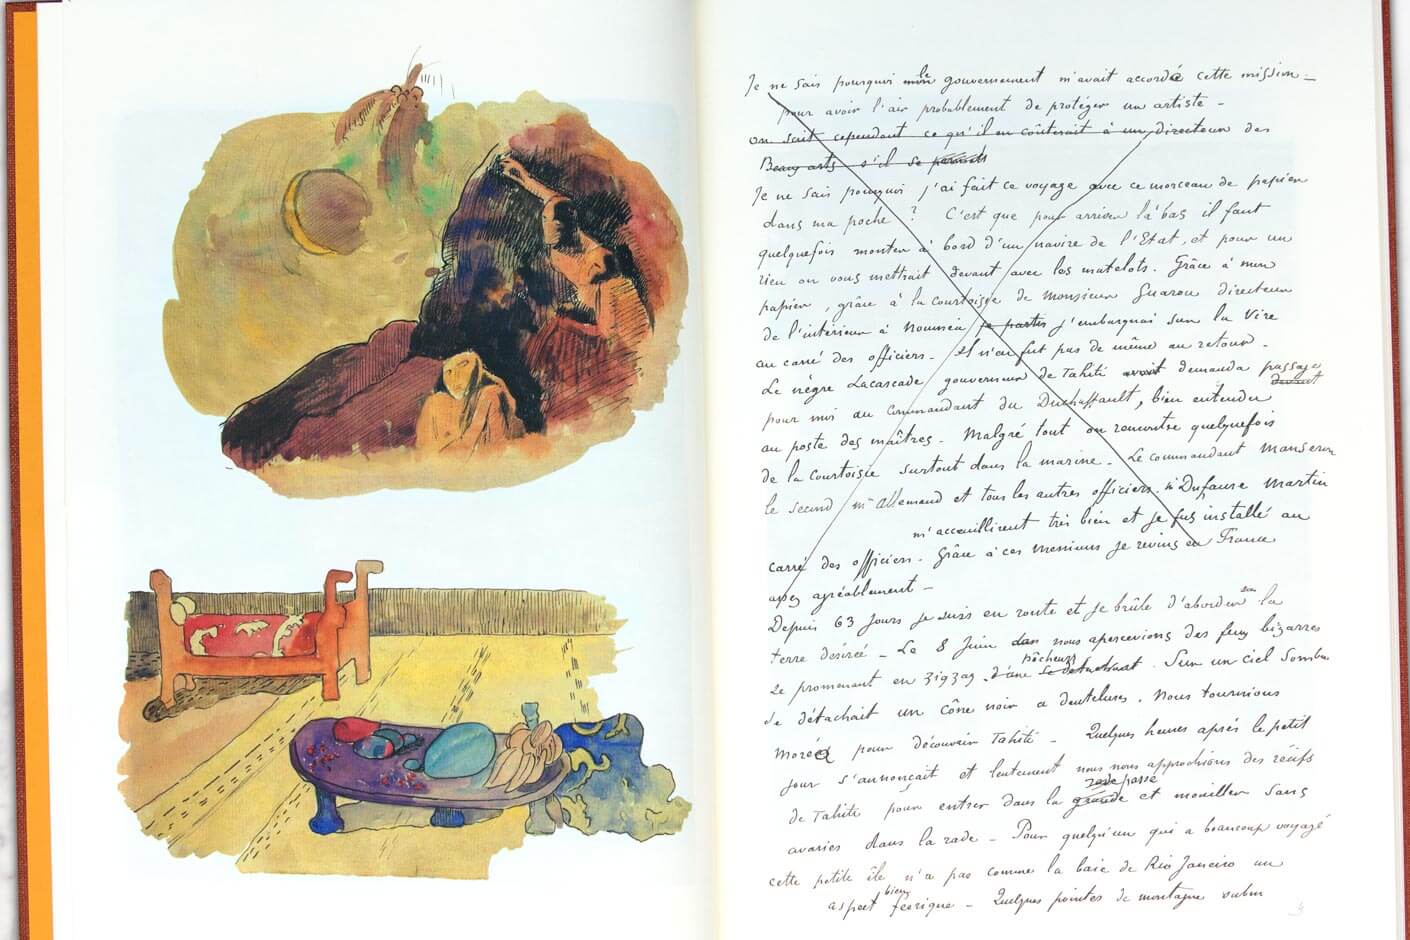 Je ne sais pourquoi le gouvernement m'avait accordé cette mission –
pour avoir l'air probablement de protéger un artiste –
on sait cependant ce qu'il en coûterait à un directeur des
Beaux arts s'il se permet
Je ne sais pourquoi j'ai fait ce voyage avec ce morceau de papier
dans ma poche ? C'est que pour arriver là bas il faut
quelquefois monter à bord d'un navire de l'Etat, et pour un
rien on vous mettrait devant avec les matelots. Grâce à mon
papier, grâce à la courtoisie de Monsieur directeur
de l'intérieur à Nouméa je partis j'embarquai sur la Vire
au carré des officiers – Il n'en fut pas de même au retour –
Le nègre Lacascade gouverneur de Tahiti avait demanda passage
devant
pour moi au Commandant du Duchaffault, bien entendu
au poste des maîtres – Malgré tout on rencontre quelquefois
de la courtoisie surtout dans la marine – Le commandant
le second mr Allemand et tous les autres officiers, Mr Dufaure Martin
m'accueillirent très bien et je fus installé au
carré des officiers. Grâce à ces messieurs je revins en France
assez agréablement –
Depuis 63 jours je suis en route et je brûle d'aborder la
terre désirée – Le 8 Juin dans nous apercevions des feux bizarres
pêcheurs
se promenant en zigzag. Sur un ciel sombre
se détachait un cône noir a dentelures. Nous tournions
Moréa pour découvrir Tahiti – Quelques heures après le petit
jour s'annonçait et lentement nous nous approchions des récifs
passe
de Tahiti pour entrer dans la et mouiller sans
avaries dans la rade – Pour quelqu'un qui a beaucoup voyagé
cette petite île n'a pas comme la baie de Rio Janeiro un
bien
aspect féerique – Quelques pointes de montagne